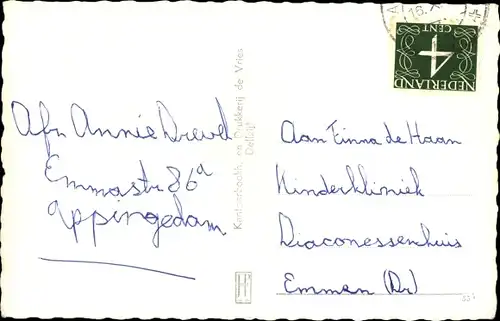 Afz. Annie Drevel
Emmastr 86a
Appingedam
Kantoorboekh. en Drukkerij de Vries
Delfzijl
16. X
NEDERLAND
4
CENT
Aan Finna de Haan
Kinderkliniek
Diaconessenhuis
Emmen (Dr)